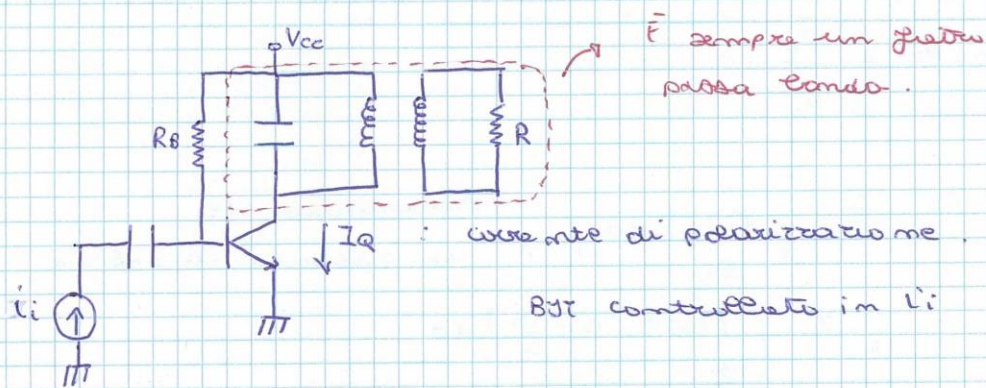 Vcc
È sempre un filtro
passa banda.
RB
R
IQ : corrente di polarizzazione.
ii
BJT controllato in ii